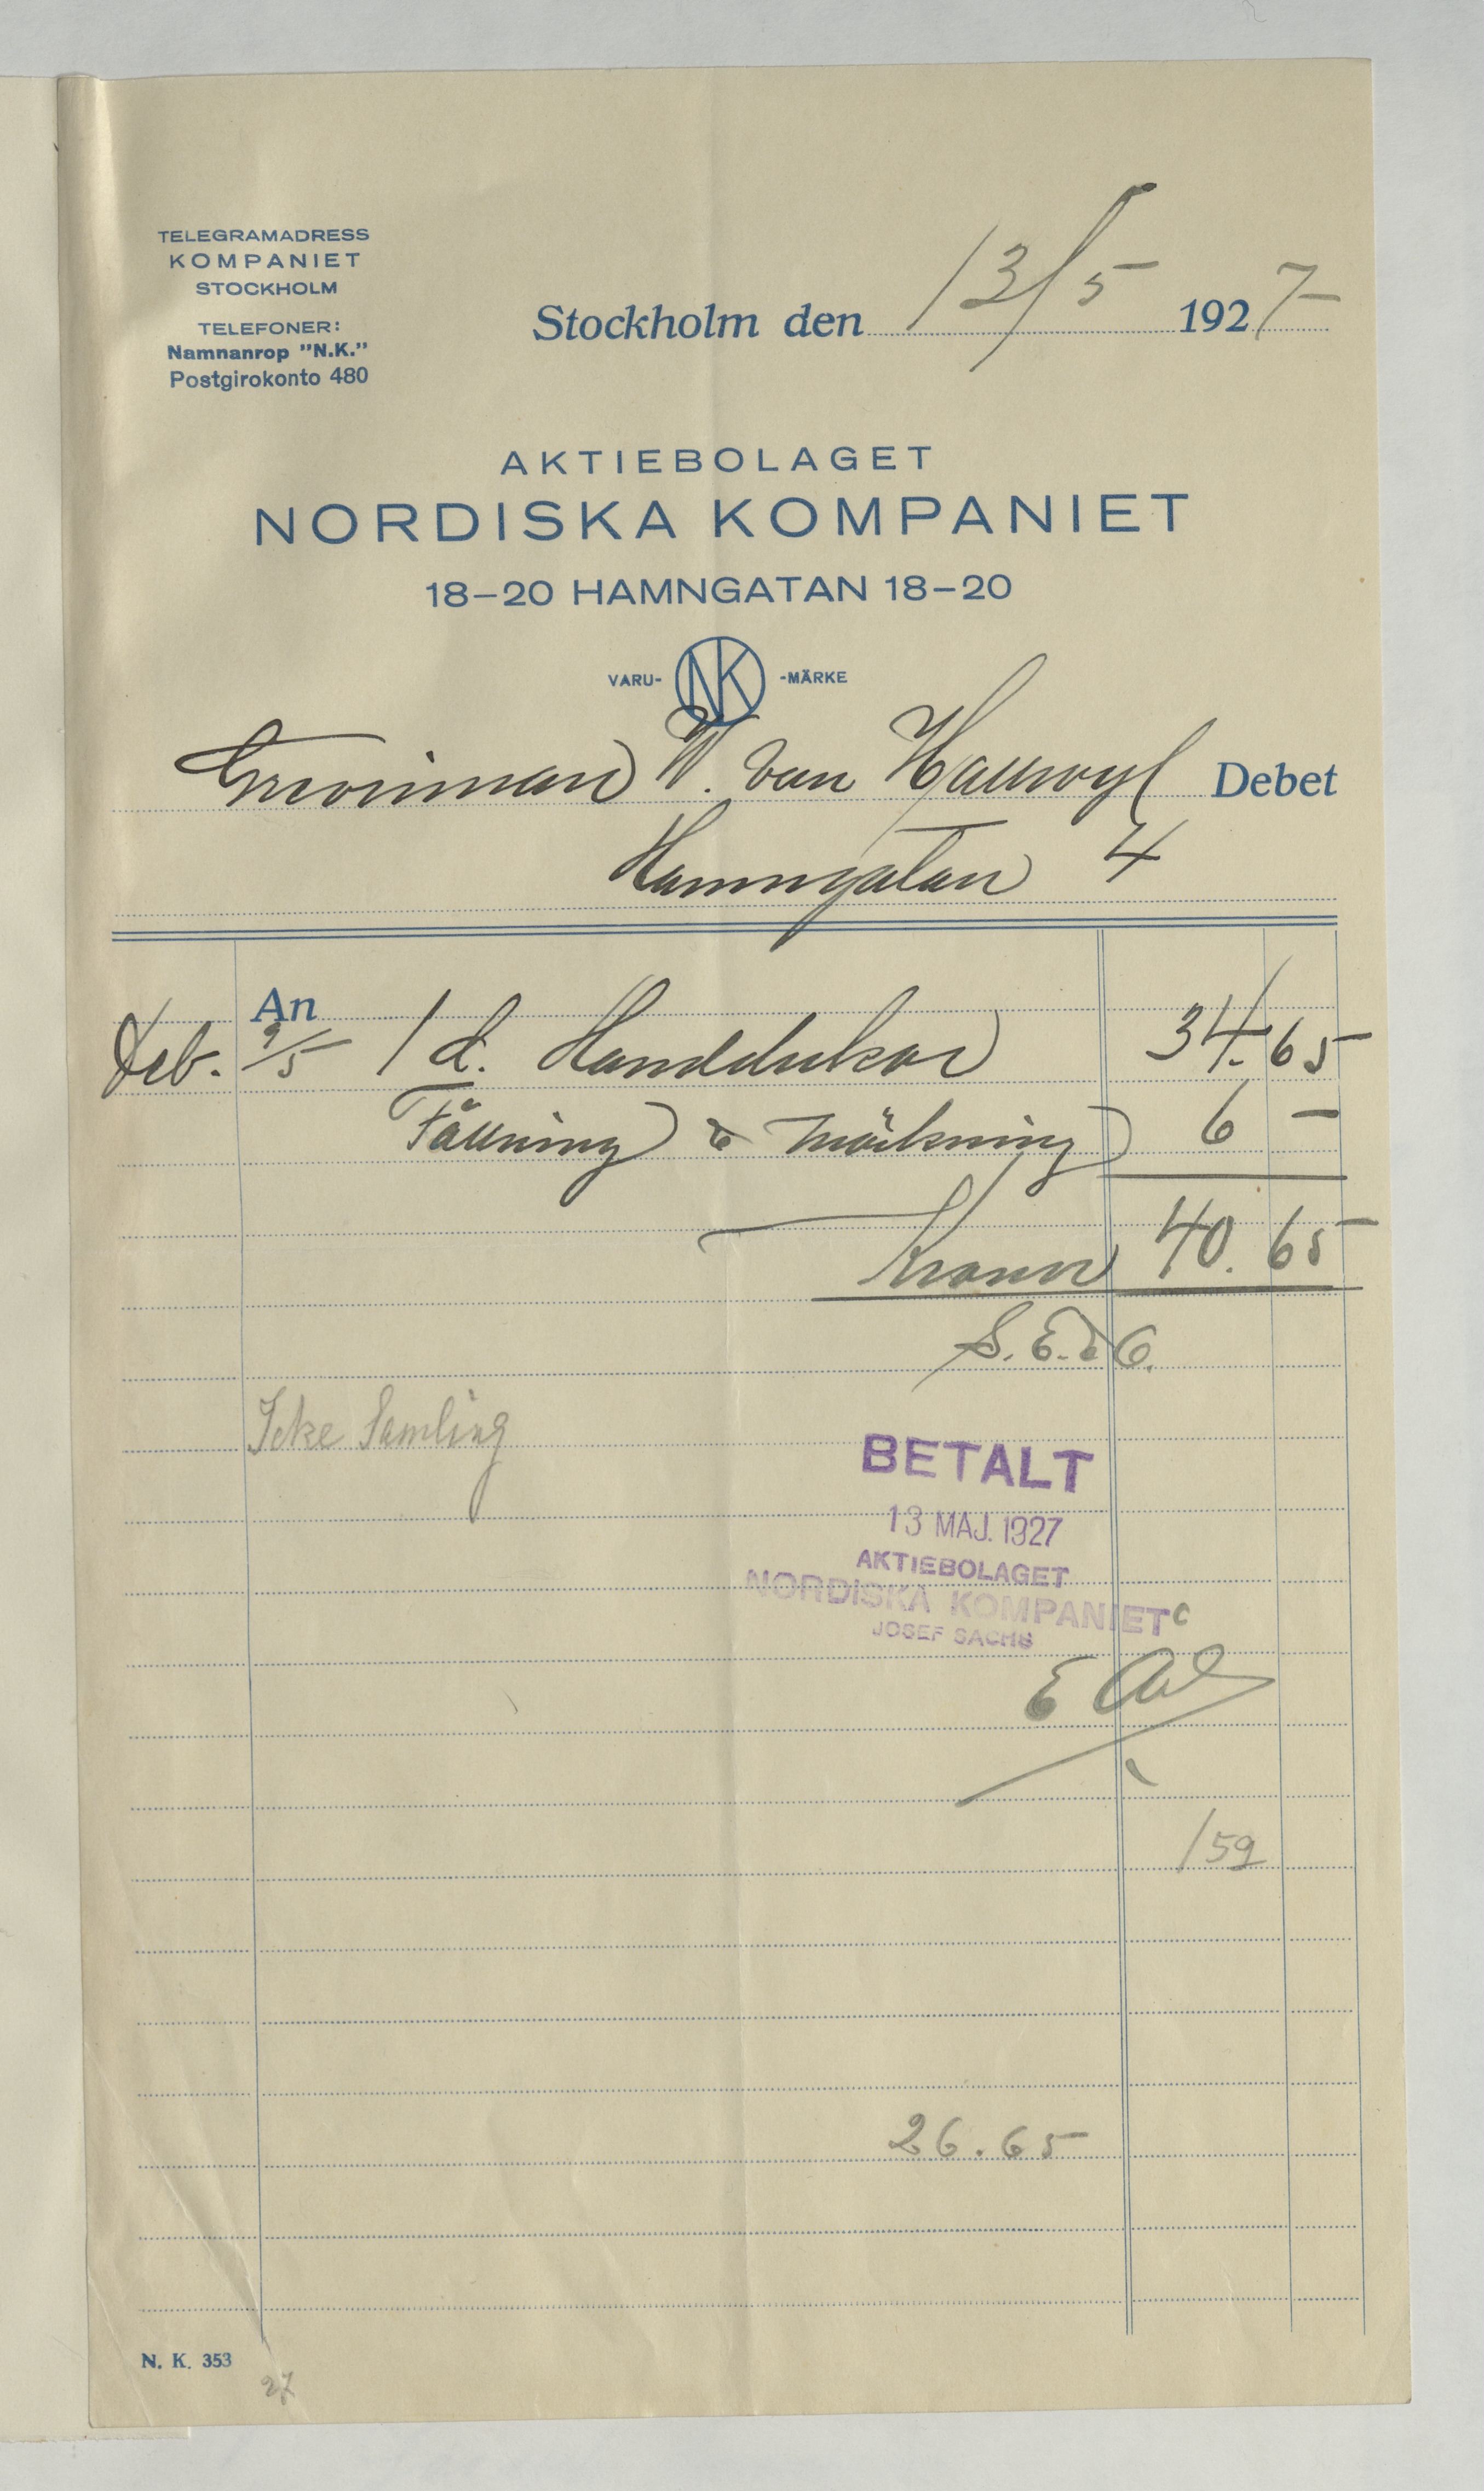 TELEGRAMADRESS
KOMPANIET
STOCKHOLM
TELEFONER:
Namnanrop "N.K."
Postgirokonto 480
Stockholm den 13/5 1927
AKTIEBOLAGET
NORDISKA KOMPANIET
18–20 HAMNGATAN 18–20
VARU- NK -MÄRKE
Grevinnan W. von Hallwyl Debet
Hamngatan 4
An
Deb. 9/5 1 d. Handdukar 34.65
Fållning & märkning 6 –
Kronor 40.65
S. E. & O.
Icke Samling
BETALT
13 MAJ. 1927
AKTIEBOLAGET
NORDISKA KOMPANIET
JOSEF SACHS
159
26.65
N. K. 353
27